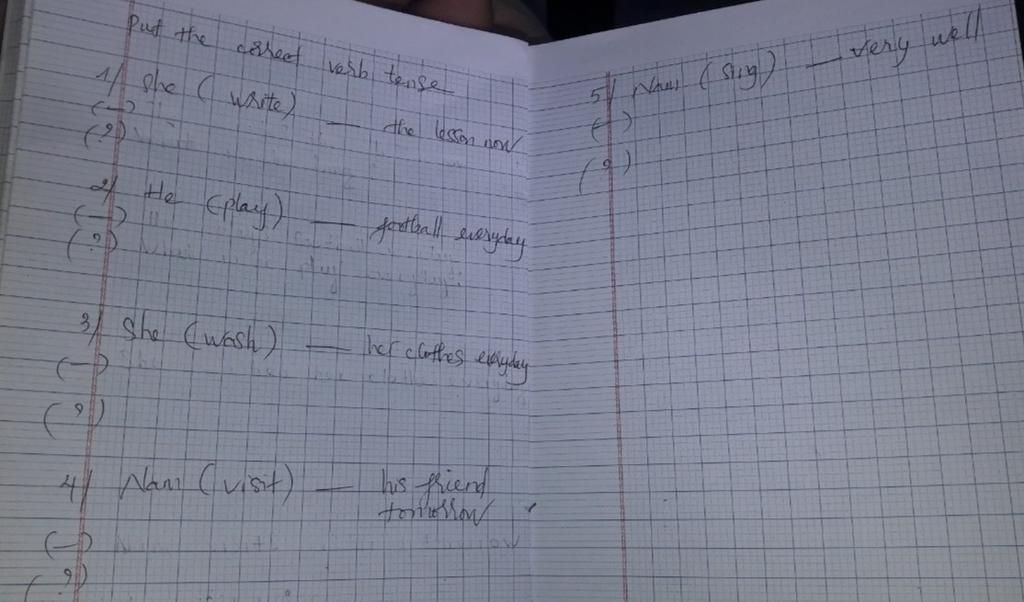 Put the correct verb tense
1/ She (write) — the lesson now
(—)
(?)
2/ He (play) — football everyday
(—)
(?)
3/ She (wash) — her clothes everyday
(—)
(?)
4/ Nam (visit) — his friend
tomorrow
(—)
(?)
5/ Nam (sing) — very well
(—)
(?)